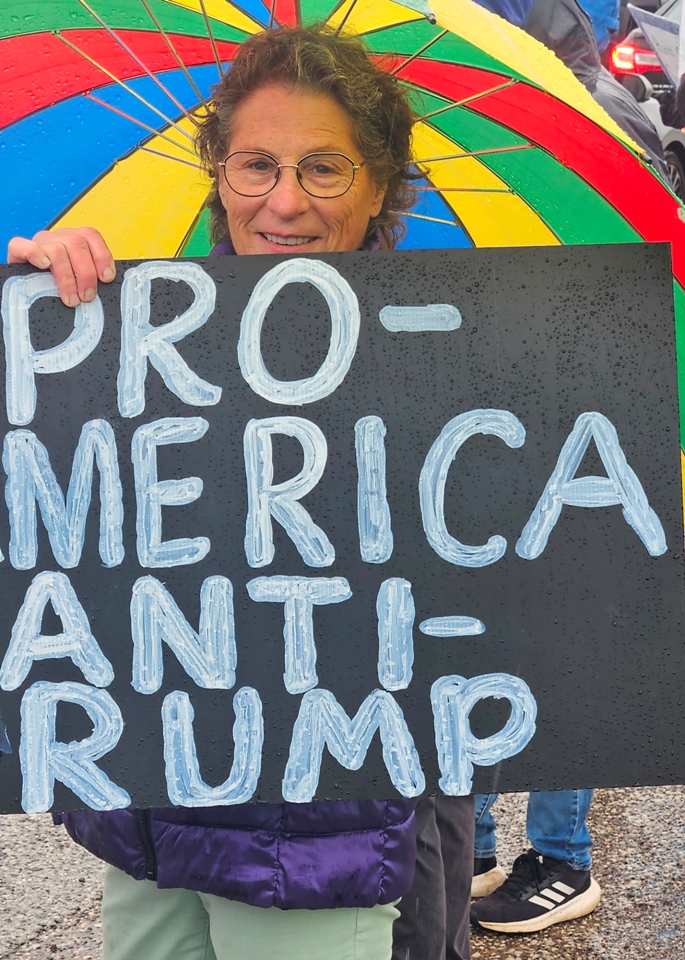 PRO-
MERICA
ANTI-
RUMP